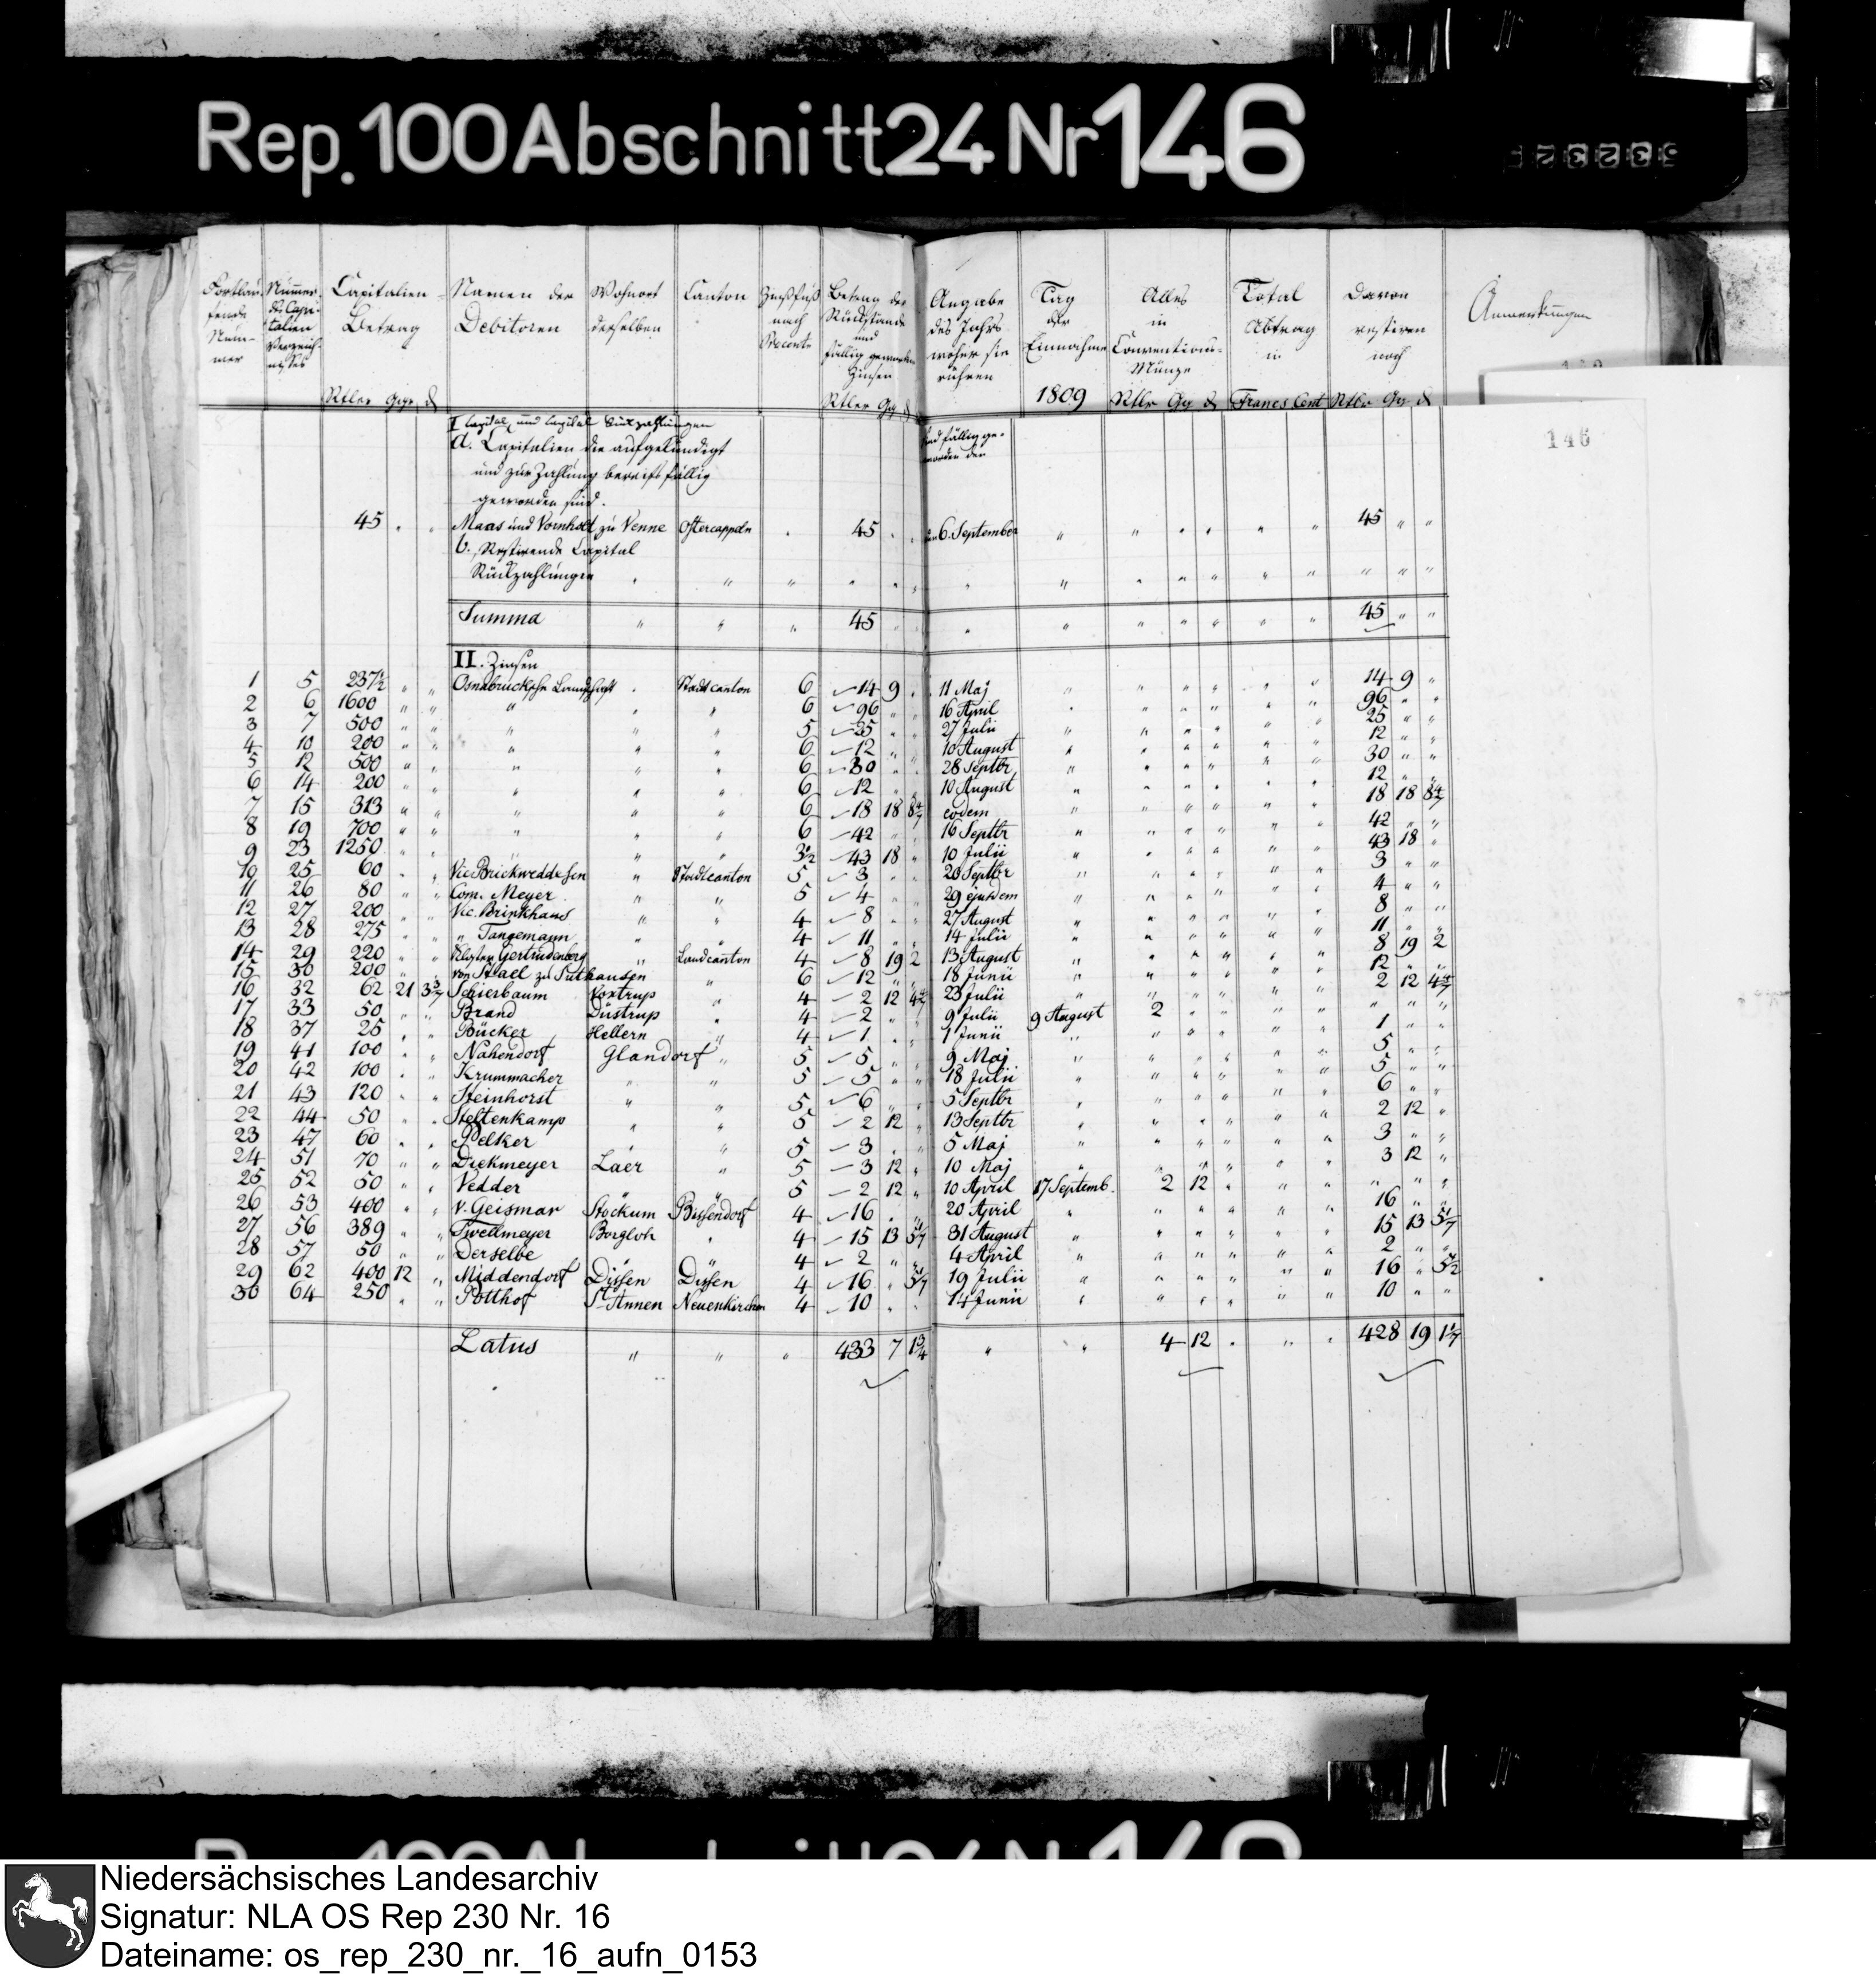 Rep. 100 Abschnitt 24 Nr 146
146
Fortlaufende Nummer | Nummer des Capitalien Verzeichnißes | Capitalien Betrag Rtler Ggr d | Namen der Debitoren | Wohnort derselben | Canton | Zinsfuß nach Procente | Betrag der Rückstände und fällig gewordene Zinsen Rtler Gg d | Angabe des Jahrs woher sie rühren | Tag der Einnahme 1809 | Alles in Conventions-Münze Rtlr Gg d | Total Abtrag in Francs Cent | Davon restiren noch Rtlr Gg d | Anmerkungen
I Capital und Capital Rückzahlungen | sind fällig geworden den
a. Capitalien die aufgekündigt
und zur Zahlung bereits fällig
geworden sind.
45 " " Maas und Vornholt zu Venne Ostercappeln " 45 " " 6. September " " " " " " 45 " "
b. Restirende Capital
Rückzahlungen " " " " " " " " " " " " " " " "
Summa " " " 45 " " " " " " " " " 45 " "
II. Zinsen
1 5 237½ " " Osnabrücksche Landschaft " Stadtcanton 6 14 9 " 11 Maj " " " " " " 14 9 "
2 6 1600 " " " " " 6 96 " " 16 April " " " " " " 96 " "
3 7 500 " " " " " 5 25 " " 27 Julii " " " " " " 25 " "
4 10 200 " " " " " 6 12 " " 10 August " " " " " " 12 " "
5 12 500 " " " " " 6 30 " " 28 Septbr " " " " " " 30 " "
6 14 200 " " " " " 6 12 " " 10 August " " " " " " 12 " "
7 15 313 " " " " " 6 18 18 8 4/7 eodem " " " " " " 18 18 8 4/7
8 19 700 " " " " " 6 42 " " 16 Septbr " " " " " " 42 " "
9 23 1250 " " " " " 3½ 43 18 " 10 Julii " " " " " " 43 18 "
10 25 60 " " Vic. Brickweddesen " Stadtcanton 5 3 " " 20 Septbr " " " " " " 3 " "
11 26 80 " " Com. Meyer " " 5 4 " " 29 ejusdem " " " " " " 4 " "
12 27 200 " " Vic. Brinkhaus " " 4 8 " " 27 August " " " " " " 8 " "
13 28 275 " " " Tangemann " " 4 11 " " 14 Julii " " " " " " 11 " "
14 29 220 " " Kloster Gertrudenberg " Landcanton 4 8 19 2 13 August " " " " " " 8 19 2
15 30 200 " " von Stael zu Suthausen " 6 12 " " 18 Junii " " " " " " 12 " "
16 32 62 21 3 3/7 Schierbaum Voxtrup " 4 2 12 4 4/7 23 Julii " " " " " " 2 12 4 4/7
17 33 50 " " Brand Düstrup " 4 2 " " 9 Julii 9 August 2 " " " " " " "
18 37 25 " " Bücker Hellern " 4 1 " " 1 Junii " " " " " " 1 " "
19 41 100 " " Nahendorf Glandorf " 5 5 " " 9 Maj " " " " " " 5 " "
20 42 100 " " Krummacher " " 5 5 " " 18 Julii " " " " " " 5 " "
21 43 120 " " Steinhorst " " 5 6 " " 5 Septbr " " " " " " 6 " "
22 44 50 " " Steltenkamp " " 5 2 12 " 13 Septbr " " " " " " 2 12 "
23 47 60 " " Pelker " " 5 3 " " 5 Maj " " " " " " 3 " "
24 51 70 " " Diekmeyer Laer " 5 3 12 " 10 Maj " " " " " " 3 12 "
25 52 50 " " Vedder " " 5 2 12 " 10 April 17 Septemb. 2 12 " " " " " "
26 53 400 " " v. Geismar Stockum Bissendorf 4 16 " " 20 April " " " " " " 16 " "
27 56 389 " " Twellmeyer Borgloh " 4 15 13 5 1/7 31 August " " " " " " 15 13 5 1/7
28 57 50 " " Derselbe " " 4 2 " " 4 April " " " " " " 2 " "
29 62 400 12 " Middendorf Dissen Dissen 4 16 " 5 1/7 19 Julii " " " " " " 16 " 5 1/2
30 64 250 " " Potthof St Annen Neuenkirchen 4 10 " " 14 Junii " " " " " " 10 " "
Latus " " " 433 7 1 3/4 " " 4 12 " " " 428 19 1 1/7
Niedersächsisches Landesarchiv
Signatur: NLA OS Rep 230 Nr. 16
Dateiname: os_rep_230_nr._16_aufn_0153